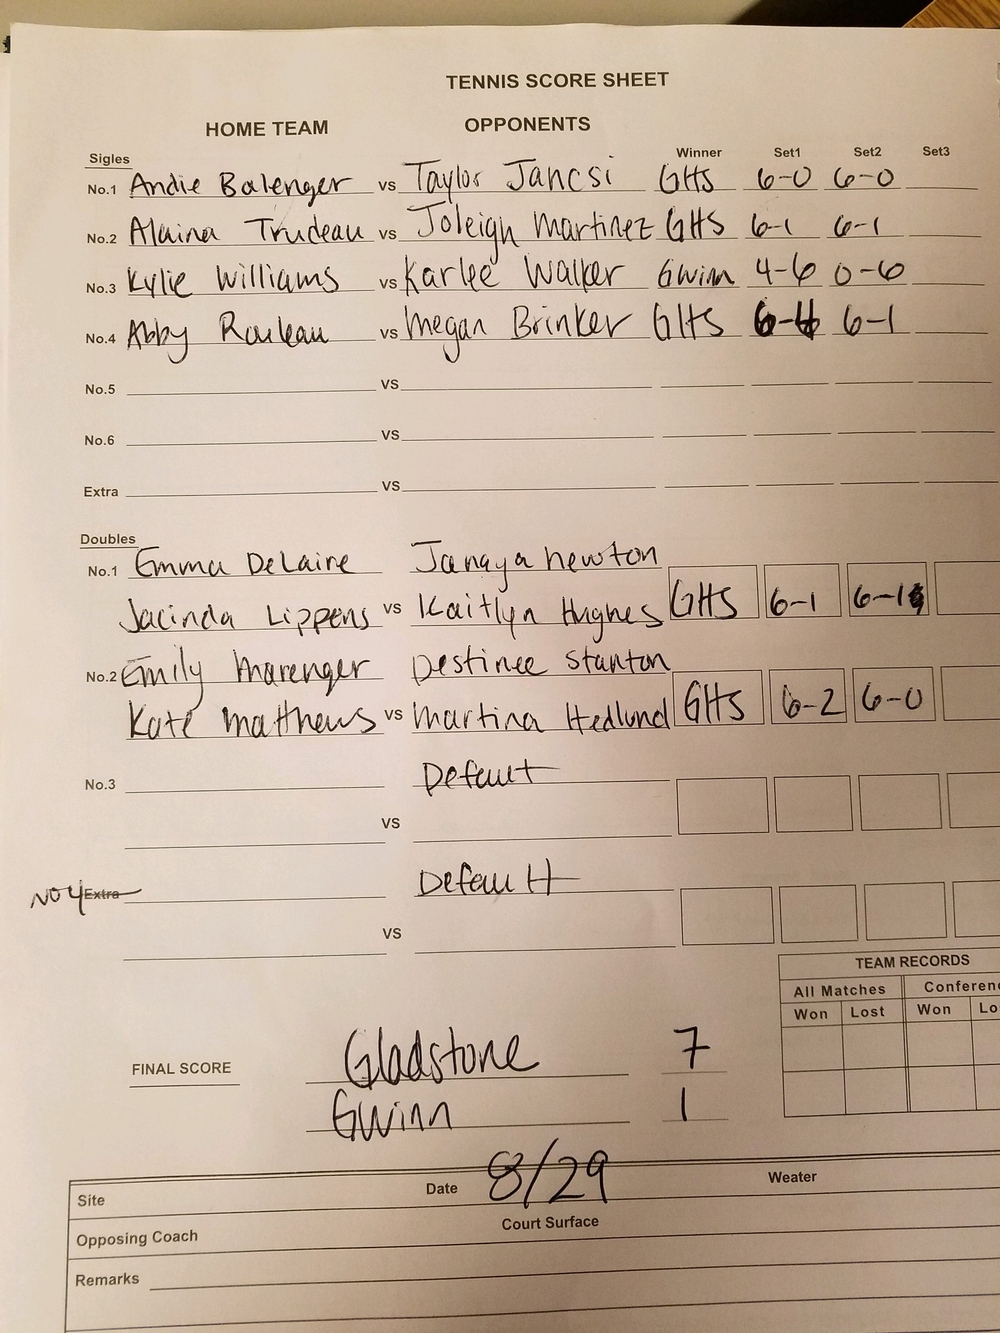 TENNIS SCORE SHEET
HOME TEAM OPPONENTS
Sigles Winner Set1 Set2 Set3
No.1 Andie Balenger vs Taylor Jancsi GHS 6-0 6-0
No.2 Alaina Trudeau vs Joleigh Martinez GHS 6-1 6-1
No.3 Kylie Williams vs Karlee Walker Gwinn 4-6 0-6
No.4 Abby Rouleau vs Megan Brinker GHS 6-4 6-1
No.5 VS
No.6 VS
Extra VS
Doubles
No.1 Emma DeLaire Janaya Newton
Jacinda Lippens vs Kaitlyn Hughes GHS 6-1 6-1
No.2 Emily Marenger Destinee Stanton
Kate Matthews vs Martina Hedlund GHS 6-2 6-0
No.3 Default
VS
NO 4 Extra Default
VS
TEAM RECORDS
All Matches Conferenc
Won Lost Won Lo
FINAL SCORE Gladstone 7
Gwinn 1
Site Date 8/29 Weater
Opposing Coach Court Surface
Remarks